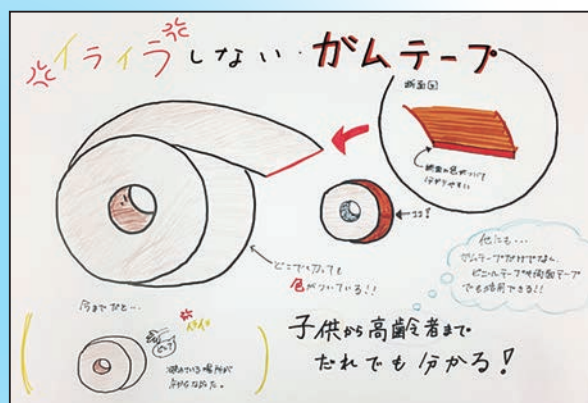 イライラしない・ガムテープ
断面図
断面に色がついて
分かりやすい
ココ!
どこで切っても
色がついている!!
他にも…
ガムテープだけでなく、
ビニールテープや両面テープ
でも活用できる!!
今までだと…
イライラ
場所が
分からなかった。
子供から高齢者まで
だれでも分かる!